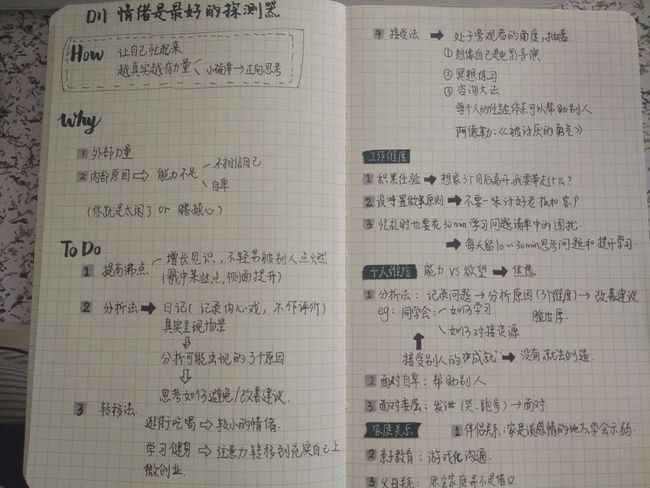 D11 情绪是最好的探测器
How 让自己忙起来
越真实越有力量 小确幸→正向思考
Why
1 外部力量
2 内部原因⇒能力不足 不相信自己
自卑
(你就是太闲了 or 瞎操心)
To Do
1 提高沸点 增长见识,不轻易被别人点燃
(戳中某些点,侧面提升)
2 分析法→日记(记录内心戏,不作评价)
真实呈现场景
分析可能出现的3个原因
思考如何避免/改善建议
3 转移法
逛街吃喝⇒较小的情绪
学习健身⇒注意力转移到充实自己上
微创业
4 接受法→处于旁观者的角度,抽离
①想像自己是电影导演
②冥想练习
③咨询大法
每个人的经验体系可以帮助别人
阿德勒:《被讨厌的勇气》
工作维度
1 积累经验→想象3个月后离开,我要带走什么?
2 设置做事原则→不要一味讨好老板和客户
3 忙乱时也要花30min学习问题清单中的困扰
→每天留10~30min思考问题和提升学习
个人维度 能力 VS 欲望→焦虑
1 分析法:记录问题→分析原因(3个维度)→改善建议
eg:同学会:如何学习 脸皮厚
如何对接资源
接受别人的"成就"→没有就去创造
2 面对自卑:帮助别人
3 面对委屈:发泄(哭、跑步)→面对
家庭关系 1 伴侣关系:家是谈感情的地方,学会示弱
2 亲子教育:游戏化沟通
3 父母关系:原生家庭并不是借口